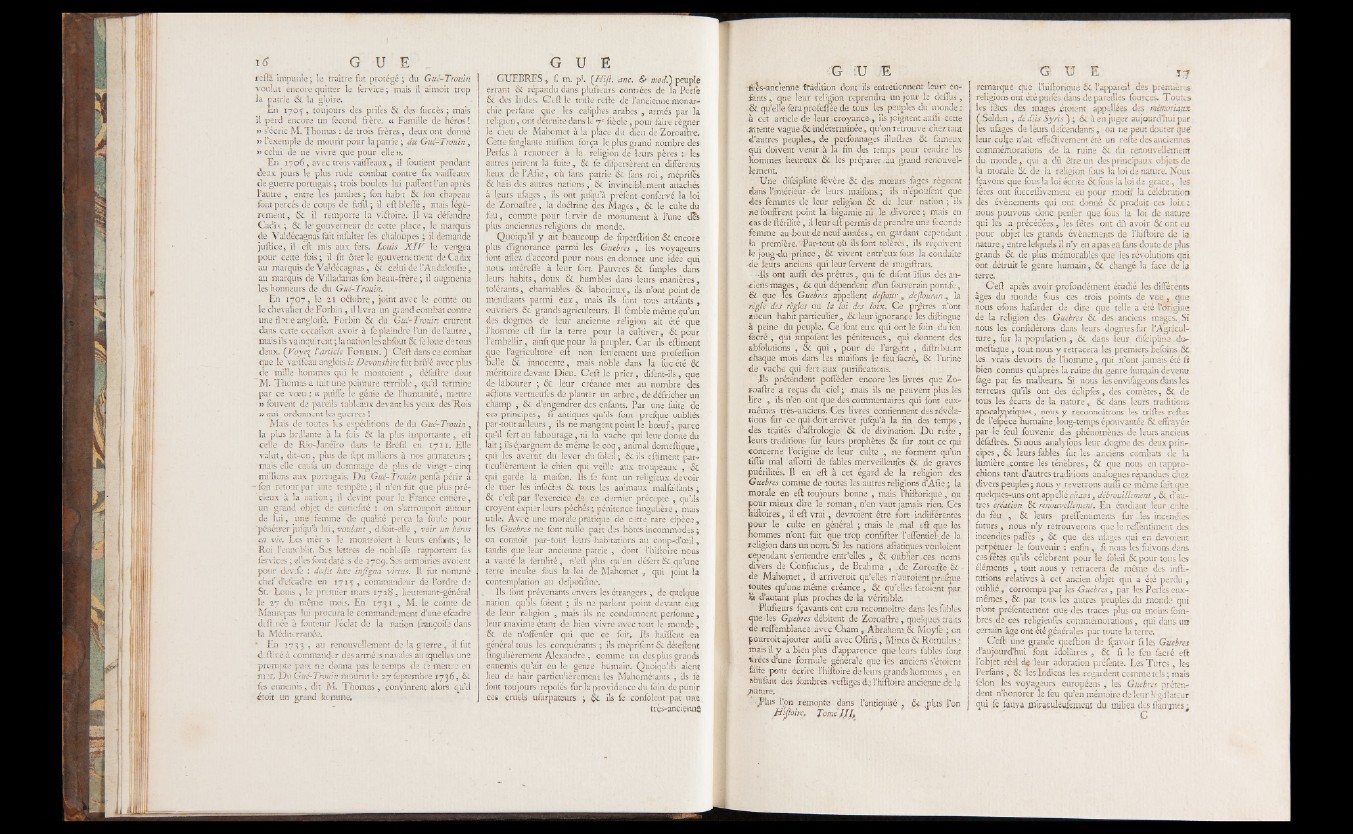 16 G U E
resta impunie; le traître fut protégé; du Gué-Trouin
voulut encore quitter le service; mais il aimoit trop
la patrie & la gloire.
En 1705, toujours des prises & des succès; mais
il perd encore un second frère. « Famille de héros!
» s'écrie M. Thomas: de trois frères, deux ont donné
» l'exemple de mourir pour la patrie; du Gué-Trouin,
» celui de ne vivre que pour elle ».
En 1706, avec trois vaisseaux, il soutient pendant
deux jours le plus rude combat contre six vaisseaux
de guerre portugais; trois boulets lui passent l'un après
l'autre, entre les jambes; son habit & son chapeau
sont percés de coups de fusil; il est blessé, mais légé-
rement, & il remporte la victoire. Il va défendre
Cadix, & le gouverneur de cette place, le marquis
de Valdécagnas fait insulter ses chaloupes; il demande
justice, il est mis aux fers. Louis XIV le vengea
pour cette fois; il fit ôter le gouvernement de Cadix
au marquis de Valdécagnas, & celui de l'Andalousie,
au marquis de Villadarias son beau-frère; il augmenta
les honneurs de du Gué-Trouin.
En 1707, le 21 octobre, joint avec le comte ou
le chevalier de Forbin, il livra un grand combat contre
une flotte angloise. Forbin & du Gué-Trouin eurent
dans cette occasion avoir à se plaindre l'un de l'autre,
mais ils vainquirent; la nation les absout & se loue de tous
deux. (Voyez l'article FORBIN.) C'est dans ce combat
que le vaisseau anglois le Devonshire fut brûlé avec plus
de mille hommes qui le montoient, désastre dont
M. Thomas a fait une peinture terrible, qu'il termine
par ce vœu: « puisse le génie de l'humanité, mettre
» souvent de pareils tableaux devant les yeux des Rois
» qui ordonnent les guerres!
Mais de toutes les expéditions de du Gué-Trouin,
la plus brillante à la fois & la plus importante, est
celle de Rio-Janéiro dans le Bresil en 1711. Elle
valut, dit-on, plus de sept millions à nos armateurs;
mais elle causa un dommage de plus de vingt-cinq
millions aux portugais. Du Gué-Trouin pensa périr à
son retour par une tempête; il n'en fut que plus pré-
cieux à la nation; il devint pour la France entière,
un grand objet de curiosité: on s'attroupoit autour
de lui, une femme de qualité perça la foule pour
pénétrer jusqu'à lui, voulant, disoit-elle, voir un héros
en vie. Les mères le montroient à leurs enfans; le
Roi l'ennoblit. Ses lettres de noblesse rapportent ses
services; elles sont datées de 1709. Ses armoiries avoient
pour devise: dedit hæc insignia virtus. Il fut nommé
chef d'escadre en 1715, commandeur de l'ordre de
St. Louis, le premier mars 1728, lieutenant-général
le 27 du même mois. En 1731, M. le comte de
Maurepas lui procura le commandement d'une escadre
destinée à soutenir l'éclat de la nation françoise dans
la Méditerranée.
En 1733, au renouvellement de la guerre, il fut
destiné à commander des armées navales auxquelles une
prompte paix ne donna pas le temps de se mettre en
mer. Du Gué-Trouin mourut le 27 septembre 1736, &
ses ennemis, dit M. Thomas, convinrent alors qu'il
étoit un grand homme.
G U E
GUEBRES, s. m. pl. (Hist. anc. & mod.) peuple
errant & répandu dans plusieurs contrées de la Perse
& des Indes. C'est le triste reste de l'ancienne monar-
chie persane que les caliphes arabes, armés par la
religion, ont détruite dans le 7e siècle, pour faire régner
le dieu de Mahomet à la place du dieu de Zoroastre.
Cette sanglante mission força le plus grand nombre des
Perses à renoncer à la religion de leurs pères: les
autres prirent la fuite, & se dispersèrent en différens
lieux de l'Asie, où sans patrie & sans roi, méprisés
& haïs des autres nations, & invinciblement attachés
à leurs usages, ils ont jusqu'à présent conservé la loi
de Zoroastre, la doctrine des Mages, & le culte du
feu, comme pour servir de monument à l'une des
plus anciennes religions du monde.
Quoiqu'il y ait beaucoup de superstition & encore
plus d'ignorance parmi les Guebres, les voyageurs
sont assez d'accord pour nous en donner une idée qui
nous intéresse à leur sort. Pauvres & simples dans
leurs habits, doux & humbles dans leurs manières,
tolérants, charitables & laborieux, ils n'ont point de
mendiants parmi eux, mais ils sont tous artisans,
ouvriers & grands agriculteurs. Il semble même qu'un
des dogmes de leur ancienne religion ait été que
l'homme est sur la terre pour la cultiver, & pour
l'embellir, ainsi que pour la peupler. Car ils estiment
que l'agriculture est non seulement une profession
belle & innocente, mais noble dans la société &
méritoire devant Dieu. C'est le prier, disent-ils, que
de labourer; & leur créance met au nombre des
actions vertueuses de planter un arbre, de défricher un
champ, & d'engendrer des enfants. Par une suite de
ces principes, si antiques qu'ils sont presque oubliés
par-tout ailleurs, ils ne mangent point le bœuf, parce
qu'il sert au labourage, ni la vache qui leur donne du
lait; ils épargnent de même le coq, animal domestique,
qui les avertit du lever du soleil; & ils estiment par-
ticulièrement le chien qui veille aux troupeaux, &
qui garde la maison. Ils se font un religieux devoir
de tuer les insectes & tous les animaux malfaisants;
& c'est par l'exercice de ce dernier précepte, qu'ils
croyent expier leurs péchés; pénitence singulière, mais
utile. Avec une morale pratique de cette rare espèce,
les Guebres ne sont nulle part des hôtes incommodes;
on connoît par-tout leurs habitations au coup-d'œil,
tandis que leur ancienne patrie, dont l'histoire nous
a vanté la fertilité, n'est plus qu'un désert & qu'une
terre inculte sous la loi de Mahomet, qui joint la
contemplation au despotisme.
Ils sont prévenants envers les étrangers, de quelque
nation qu'ils soient; ils ne parlent point devant eux
de leur religion, mais ils ne condamnent personne,
leur maxime étant de bien vivre avec tout le monde,
& de n'offenser qui que ce soit. Ils haïssent en
général tous les conquérants; ils méprisent & détestent
singulièrement Alexandre, comme un des plus grands
ennemis qu'ait eu le genre humain. Quoiqu'ils aient
lieu de haïr particulièrement les Mahométans, ils se
sont toujours reposés sur la providence du soin de punir
ces cruels usurpateurs; & ils se consolent par une
très-ancienne
G U E
très-ancienne tradition dont ils entretiennent leurs en-
fants, que leur religion reprendra un jour le dessus,
& qu'elle sera professée de tous les peuples du monde:
à cet article de leur croyance, ils joignent aussi cette
attente vague & indéterminée, qu'on retrouve chez tant
d'autres peuples, de personnages illustres & fameux
qui doivent venir à la fin des temps pour rendre les
hommes heureux & les préparer au grand renouvel-
lement.
Une discipline sévère & des mœurs sages règnent
dans l'intérieur de leurs maisons; ils n'épousent que
des femmes de leur religion & de leur nation; ils
ne souffrent point la bigamie ni le divorce; mais en
cas de stérilité, il leur est permis de prendre une seconde
femme au bout de neuf années, en gardant cependant
la première. Par-tout où ils sont tolérés, ils reçoivent
le joug du prince, & vivent entr'eux sous la conduite
de leurs anciens qui leur servent de magistrats.
Ils ont aussi des prêtres, qui se disent issus des an-
ciens mages, & qui dépendent d'un souverain pontife,
& que les Guebres appellent destour, destouran, la
règle des règles ou la loi des loix. Ce prêtres n'ont
aucun habit particulier, & leur ignorance les distingue
à peine du peuple. Ce sont eux qui ont le soin du feu
sacré, qui imposent les pénitences, qui donnent des
absolutions, & qui, pour de l'argent, distribuent
chaque mois dans les maisons le feu sacré, & l'urine
de vache qui sert aux purifications.
Ils prétendent posséder encore les livres que Zo-
roastre a reçus du ciel; mais ils ne peuvent plus les
lire, ils n'en ont que des commentaires qui sont eux-
mêmes très-anciens. Ces livres contiennent des révéla-
tions sur ce qui doit arriver jusqu'à la fin des temps,
des traités d'astrologie & de divination. Du reste,
leurs traditions sur leurs prophètes & sur tout ce qui
concerne l'origine de leur culte, ne forment qu'un
tissu mal assorti de fables merveilleuses & de graves
puérilités. Il en est à cet égard de la religion des
Guebres comme de toutes les autres religions d'Asie; la
morale en est toujours bonne, mais l'historique, ou
pour mieux dire le roman, n'en vaut jamais rien. Ces
histoires, il est vrai, devroient être fort indifférentes
pour le culte en général; mais le mal est que les
hommes n'ont fait que trop consister l'essentiel de la
religion dans un nom. Si les nations asiatiques vouloient
cependant s'entendre entr'elles, & oublier ces noms
divers de Confucius, de Brahma, de Zoroastre &
de Mahomet, il arriveroit qu'elles n'auroient presque
toutes qu'une même créance, & qu'elles seroient par
là d'autant plus proches de la véritable.
Plusieurs sçavants ont cru reconnoître dans les fables
que les Guebres débitent de Zoroastre, quelques traits
de ressemblance avec Cham, Abraham & Moyse; on
pourroit ajouter aussi avec Osiris, Minos & Romulus;
mais il y a bien plus d'apparence que leurs fables sont
tirées d'une formule générale que les anciens s'étoient
faite pour écrire l'histoire de leurs grands hommes, en
abusant des sombres vestiges de l'histoire ancienne de la
nature.
Plus l'on remonte dans l'antiquité, & plus l'on
Histoire. Tome III.
G U E 17
remarque que l'historique & l'appareil des premières
religions ont été puisés dans de pareilles sources. Toutes
les fêtes des mages étoient appellées des mémoriaux
(Selden, de diis Syris); & à en juger aujourd'hui par
les usages de leurs descendants, on ne peut douter que
leur culte n'ait effectivement été un reste des anciennes
commémorations de la ruine & du renouvellement
du monde, qui a dû être un des principaux objets de
la morale & de la religion sous la loi de nature. Nous
sçavons que sous la loi écrite & sous la loi de grace, les
fêtes ont successivement eu pour motif la célébration
des événements qui ont donné & produit ces loix:
nous pouvons donc penser que sous la loi de nature
qui les a précédées, les fêtes ont dû avoir & ont eu
pour objet les grands événements de l'histoire de la
nature, entre lesquels il n'y en a pas eu sans doute de plus
grands & de plus mémorables que les révolutions qui
ont détruit le genre humain, & changé la face de la
terre.
C'est après avoir profondément étudié les différents
âges du monde sous ces trois points de vue, que
nous osons hasarder de dire que telle a été l'origine
de la religion des Guebres & des anciens mages. Si
nous les considérons dans leurs dogmes sur l'Agricul-
ture, sur la population, & dans leur discipline do-
mestique, tout nous y retracera les premiers besoins &
les vrais devoirs de l'homme, qui n'ont jamais été si
bien connus qu'après la ruine du genre humain devenu
sage par ses malheurs. Si nous les envisageons dans les
terreurs qu'ils ont des éclipses, des comètes, & de
tous les écarts de la nature, & dans leurs traditions
apocalyptiques, nous y reconnoîtrons les tristes restes
de l'espèce humaine long-temps épouvantée & effrayée
par le seul souvenir des phénomènes de leurs anciens
désastres. Si nous analysons leur dogme des deux prin-
cipes, & leurs fables sur les anciens combats de la
lumière contre les ténèbres, & que nous en rappro-
chions tant d'autres traditions analogues répandues chez
divers peuples; nous y reverrons aussi ce même fait que
quelques-uns ont appellé chaos, débrouillement, & d'au-
tres création & renouvellement. En étudiant leur culte
du feu, & leurs pressentiments sur les incendies
futurs, nous n'y retrouverons que le ressentiment des
incendies passés, & que des usages qui en devoient
perpétuer le souvenir: enfin, si nous les suivons dans
ces fêtes qu'ils célèbrent pour le soleil & pour tous les
éléments, tout nous y retracera de même des insti-
tutions relatives à cet ancien objet qui a été perdu,
oublié, corrompu par les Guebres, par les Perses eux-
mêmes, & par tous les autres peuples du monde qui
n'ont présentement que des traces plus ou moins som-
bres de ces religieuses commémorations, qui dans un
certain âge ont été générales par toute la terre.
C'est une grande question de sçavoir si les Guebres
d'aujourd'hui sont idolâtres, & si le feu sacré est
l'objet réel de leur adoration présente. Les Turcs, les
Persans, & les Indiens les regardent comme tels; mais
selon les voyageurs européens, les Guebres préten-
dent n'honorer le feu qu'en mémoire de leur législateur
qui se sauva miraculeusement du milieu des flammes;
C